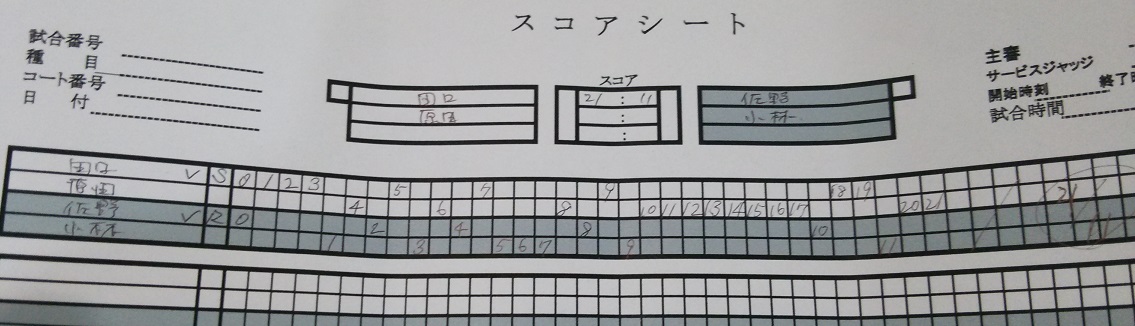 スコアシート
試合番号
種目
コート番号
日付
スコア
田口 21 : 11 佐野
原田 : 小林
:
主審
サービスジャッジ
開始時刻 終了時
試合時間
田口 V S 0 1 2 3 5 7 9 18 19 21
原田 4 6 8 10 11 12 13 14 15 16 17 20 21
佐野 V R 0 2 4 8 10 11
小林 1 3 5 6 7 9 11